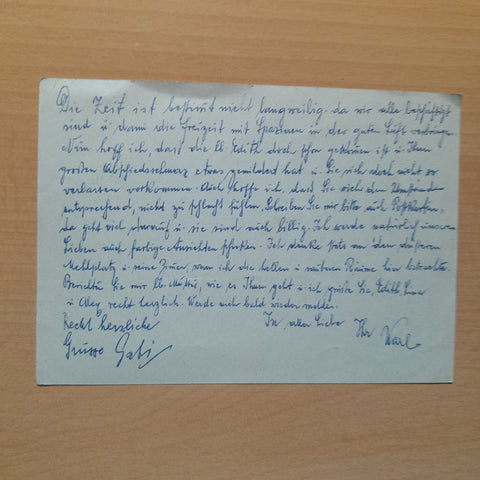 Die Zeit ist bestimt nicht langweilig. da wir alle beschäftigt
sind u. dann die Freizeit mit Spazieren in der guten Luft verbringen.
Nun hoff ich, dass die lb. Edith doch schon gekommen ist u. Ihren
großen Abschiedsschmerz etwas gemildert hat u. Sie sich doch nicht so
verlassen vorkommen. Auch hoffe ich, dass Sie sich den Umständen
entsprechend, nicht zu schlecht fühlen. Schreiben Sie mir bitte auch Postkarten,
da geht viel darauf u. sie sind auch billig. Ich werde natürlich unseren
Lieben auch farbige Ansichten schicken. Ich denke stets an den
Mehlplatz u. seine Zimer, wenn ich die hellen u. Räume hier betrachte.
Berichten Sie mir lb. wie es Ihnen geht u. ich grüße Sie, Edith,
u. recht herzlich. Werde mich bald wieder melden.
Recht herzliche In aller Liebe Ihr Karl
Grüsse Gabi